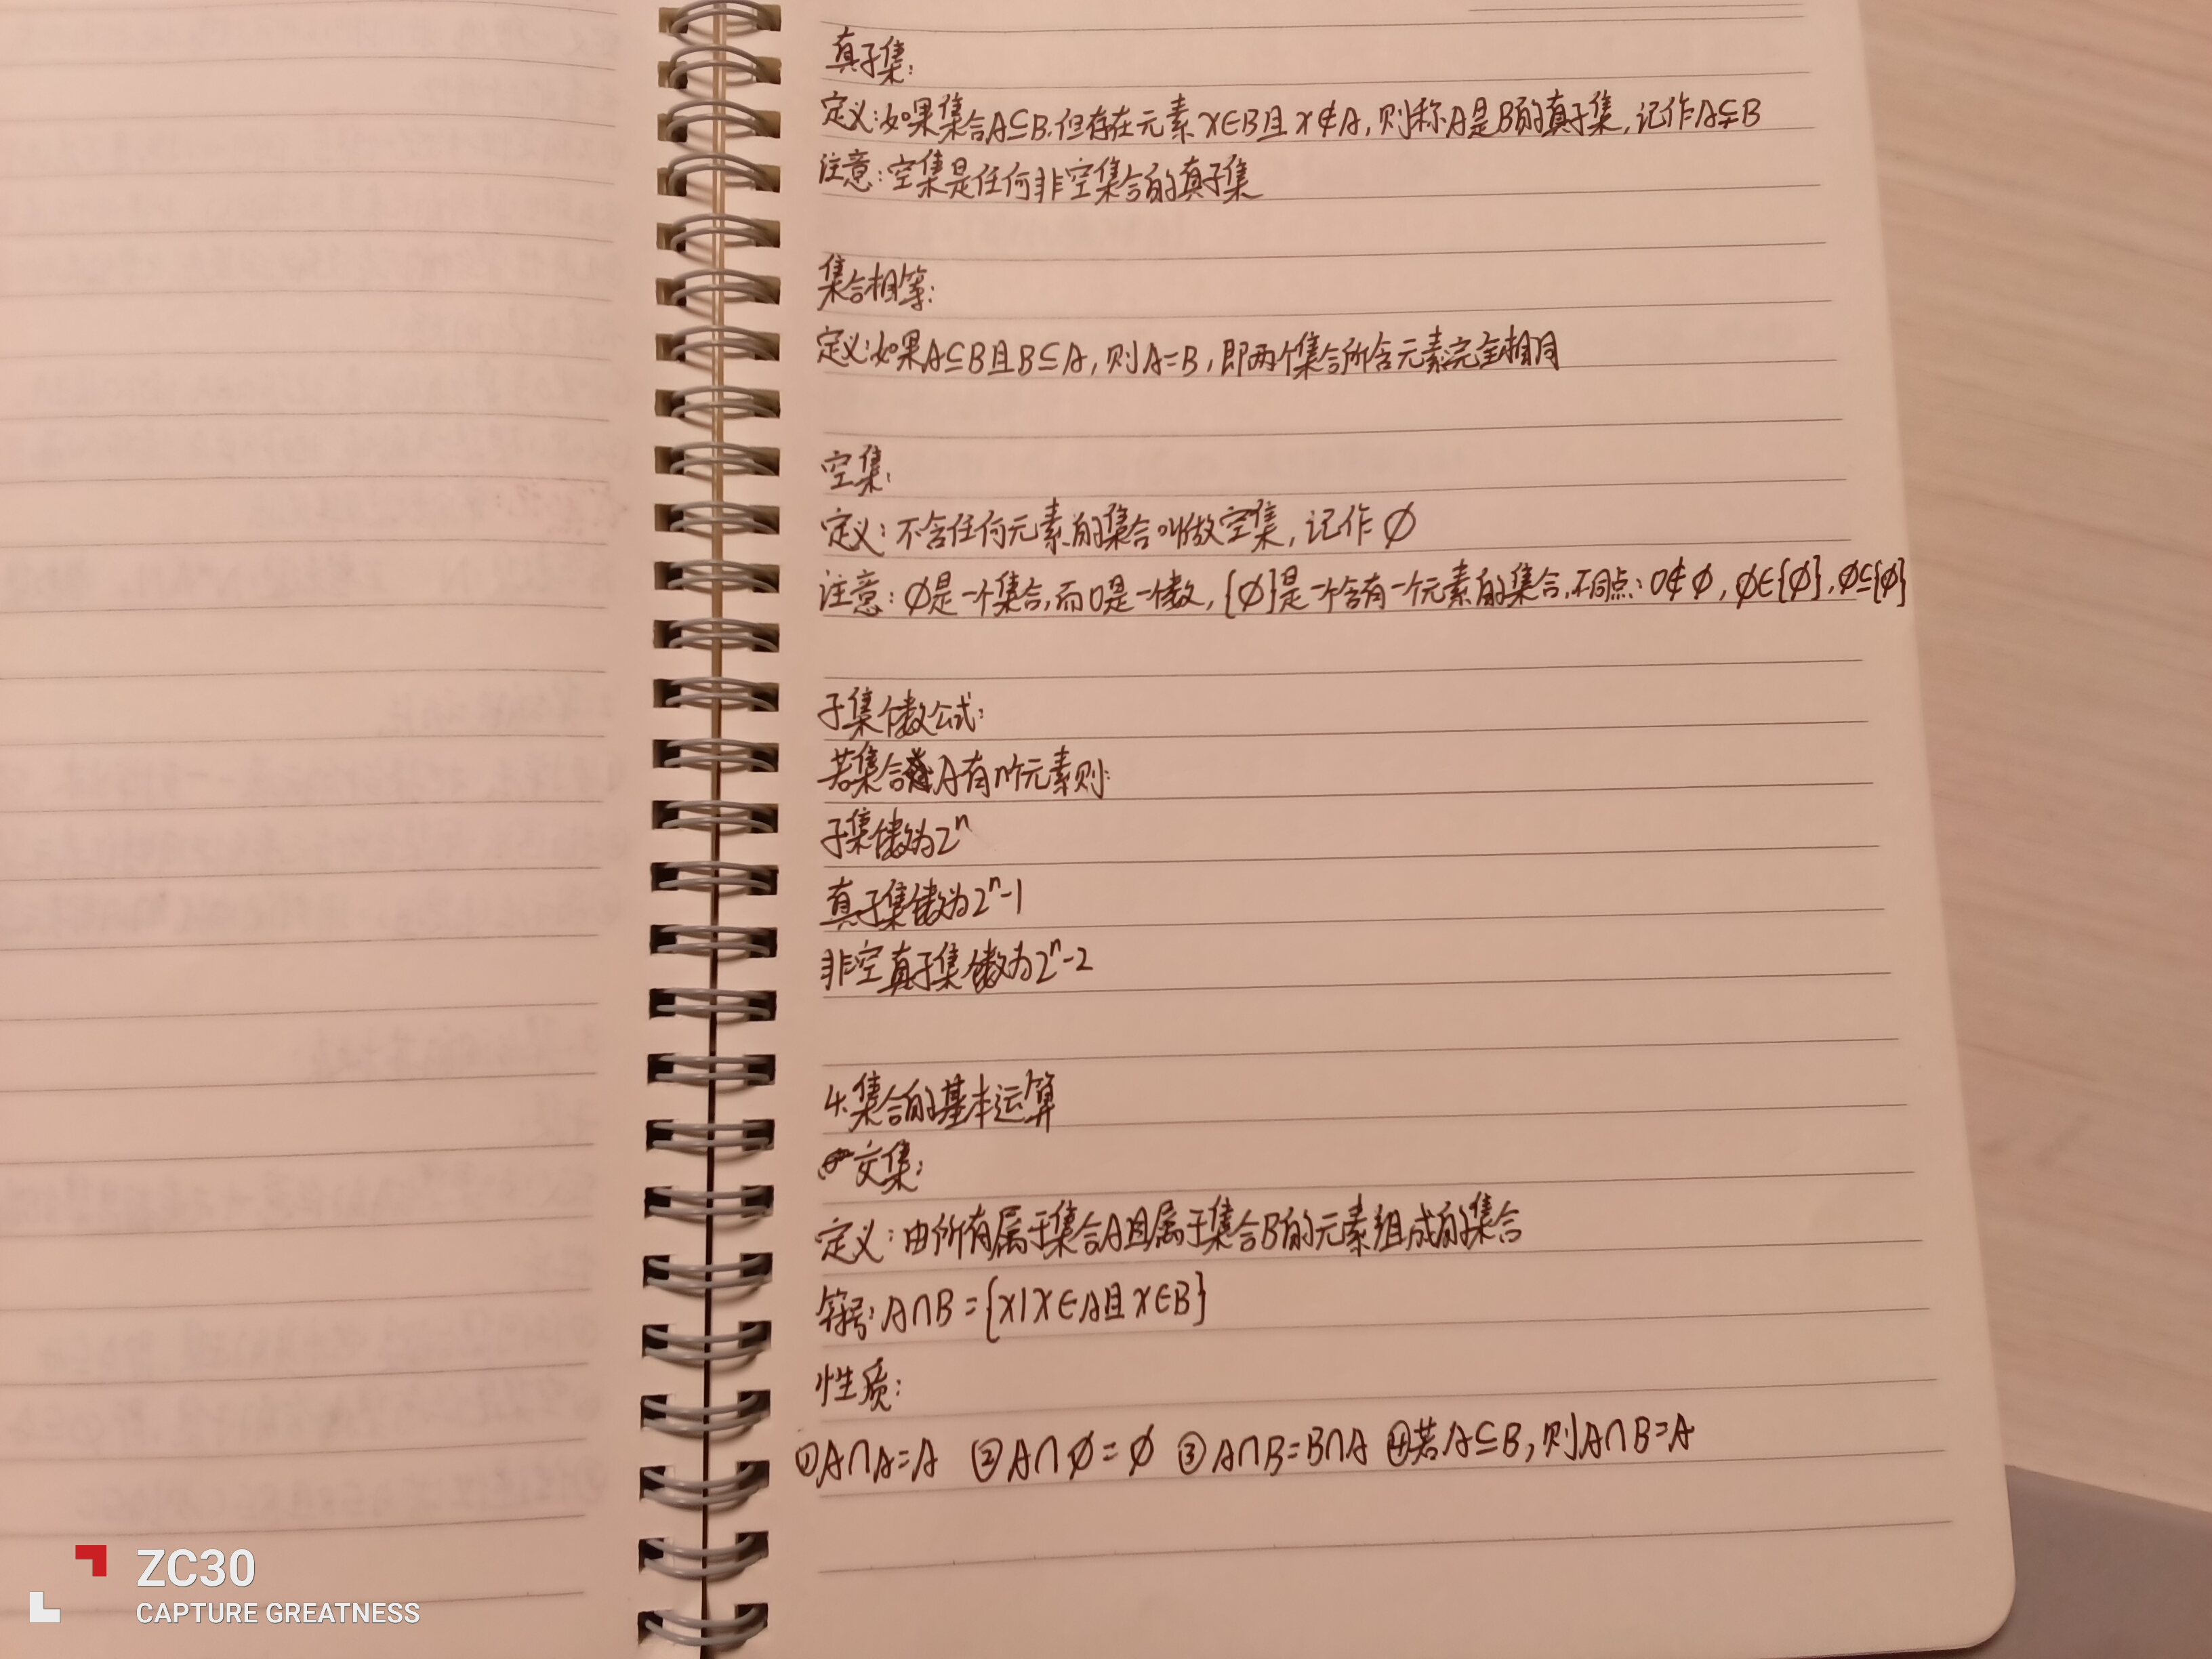 真子集:
定义:如果集合A⊆B,但存在元素 x∈B且 x∉A,则称A是B的真子集,记作A⫋B
注意:空集是任何非空集合的真子集
集合相等:
定义:如果A⊆B且B⊆A,则A=B,即两个集合所含元素完全相同
空集:
定义:不含任何元素的集合叫做空集,记作∅
注意:∅是一个集合,而0是一个数,{∅}是一个含有一个元素的集合,不同点:0∉∅,∅∈{∅},∅⊆{∅}
子集个数公式:
若集合A有n个元素则:
子集个数为2ⁿ
真子集个数为2ⁿ-1
非空真子集个数为2ⁿ-2
4.集合的基本运算
交集:
定义:由所有属于集合A且属于集合B的元素组成的集合
符号:A∩B={x|x∈A且x∈B}
性质:
①A∩A=A ②A∩∅=∅ ③A∩B=B∩A ④若A⊆B,则A∩B=A
ZC30
CAPTURE GREATNESS